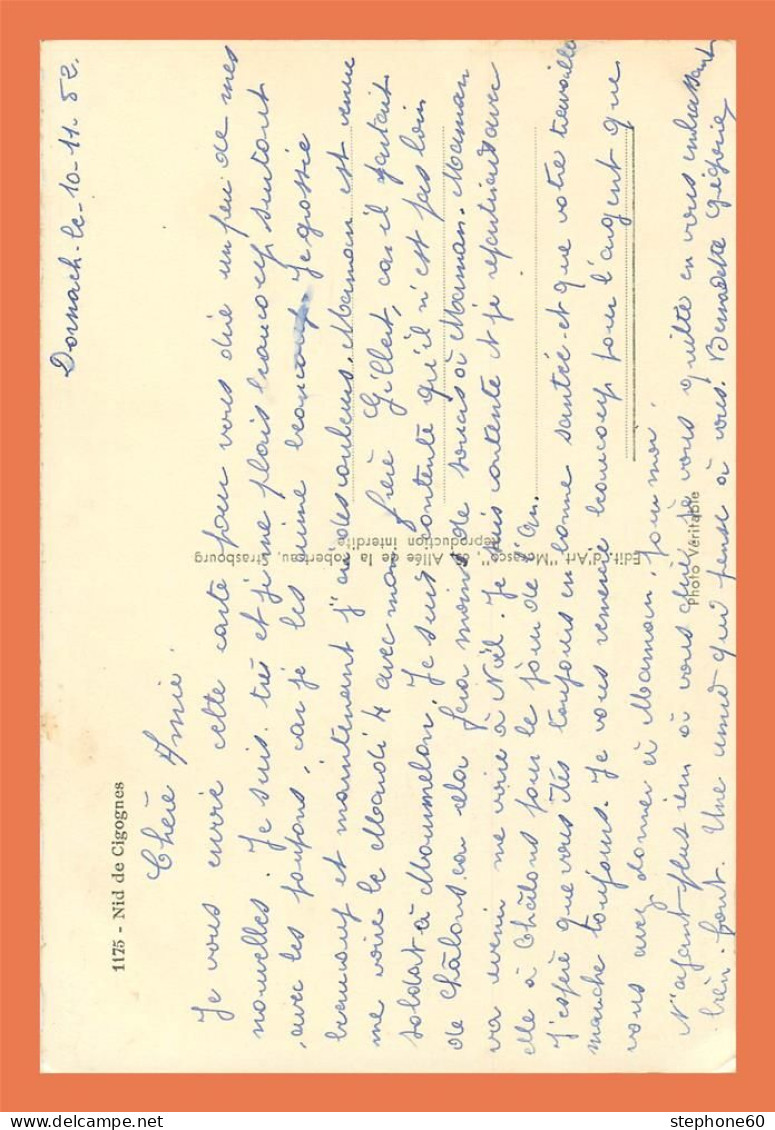 1175 - Nid de Cigognes
Dornach-le-10-11-52.
Chère Amie.
Je vous envoie cette carte pour vous dire un peu de mes
nouvelles. Je suis très et je me plais beaucoup surtout
avec les poupons, car je les aime beaucoup. Je grossie
beaucoup et maintenant j'ai des couleurs. Maman est venue
me voire le Mardi 4 avec mon frère Gilbert, cas il partait
soldat à Mourmelon. Je suis contente qu'il n'est pas loin
de Châlons car cela fera moins de soucis à Maman. Maman
va evenir me voire à Noël. Je suis contente et je repartirait avec
elle à Châlons pour le jour de l'an.
J'espère que vous êtes toujours en bonne santée et que votre travaille
marche toujours. Je vous remercie beaucoup pour l'argent que
vous avez donner à Maman, pour moi.
N'ayant plus rien à vous dire je vous quitte en vous embrassant
bien fort. Une amie qui pense à vous. Bernadette
Edit. d'Art "
", 65, Allée de la Robertsau, Strasbourg
Reproduction interdite
Photo Véritable
stephone60